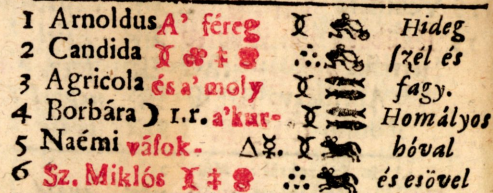 1 Arnoldus A' féreg ♊ Hideg
2 Candida ſzél és
3 Agricola és a' moly fagy.
4 Borbára ☽ 1.r. a'kur- Homályos
5 Naémi váſok- △☿. hóval
6 Sz. Miklós és esövel